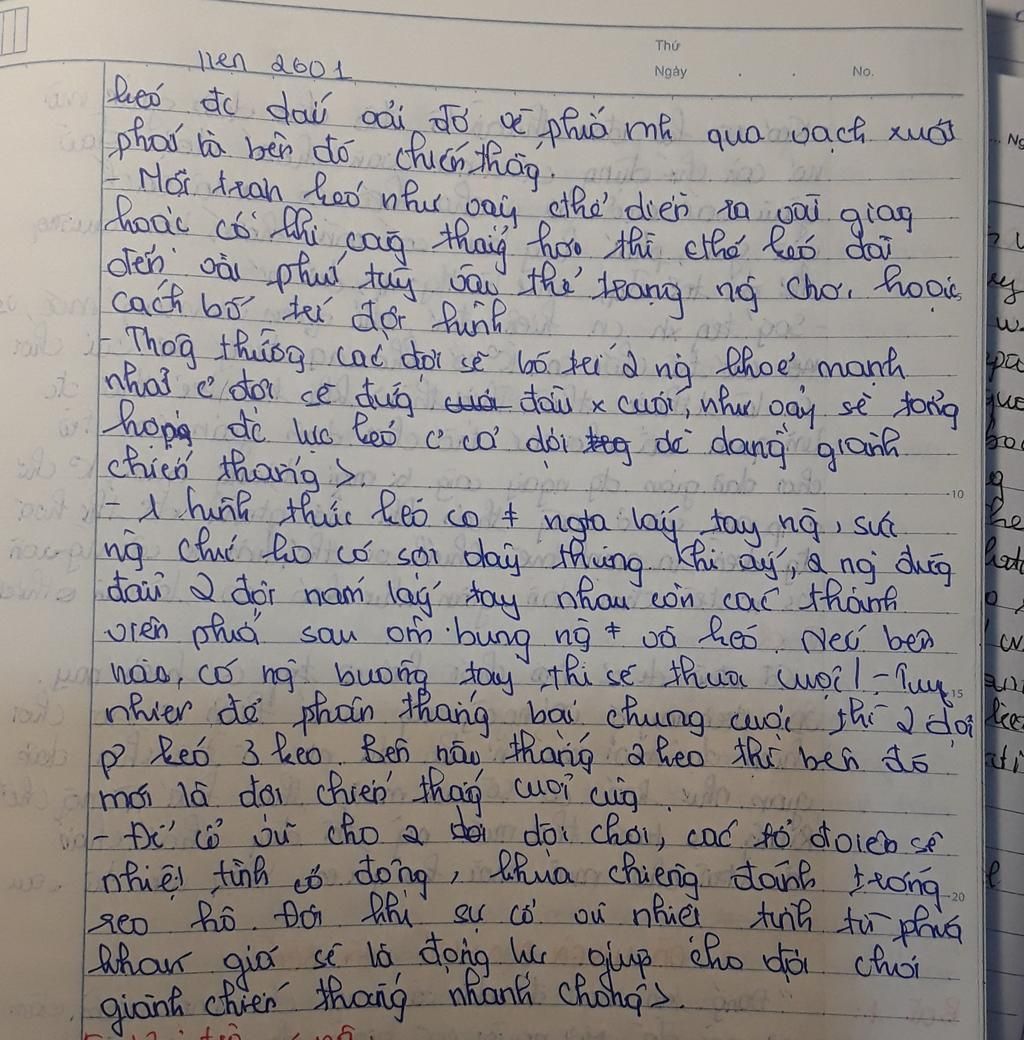 Thứ
Ngày . . No.
lien 2601
kéo đc dấu vải đỏ về phía mh qua vạch xuất
phát là bên đó chiến thắg.
- Mỗi trận kéo như vậy cthể diễn ra vài giây
hoặc có khi căg thẳg hơn thì cthể kéo dài
đến vài phút tùy vào thể trạng ng chơi hoặc
cách bố trí đội hình
- Thôg thường các đội sẽ bố trí 2 ng khoẻ mạnh
nhất ở đội sẽ đứg đầu x cuối, như vậy sẽ tổng
hợp đc lực kéo ở cả đội dễ dàng giành
chiến thắng >.
- 1 hình thức kéo co ≠ ngta lấy tay ng, sức
ng chứ ko có sợi dây thừng khi ấy, 2 ng đứg
đầu 2 đội nắm lấy tay nhau còn các thành
viên phía sau ôm bụng ng ≠ và kéo. Nếu bên
nào, có ng buông tay thì sẽ thua cuộc! - Tuy
nhiên để phân thắng bại chung cuộc thì 2 đội
p kéo 3 keo. Bên nào thắng 2 keo thì bên đó
mới là đội chiến thắg cuối cùg.
- Để cổ vũ cho 2 đội chơi, các cổ độ viên sẽ
nhiệt tình cổ động, khua chiêng đánh trống
reo hò. Đôi khi sự cổ vũ nhiệt tình từ phía
khán giả sẽ là động lực giúp cho đội chơi
giành chiến thắng nhanh chóng >.
10
15
20